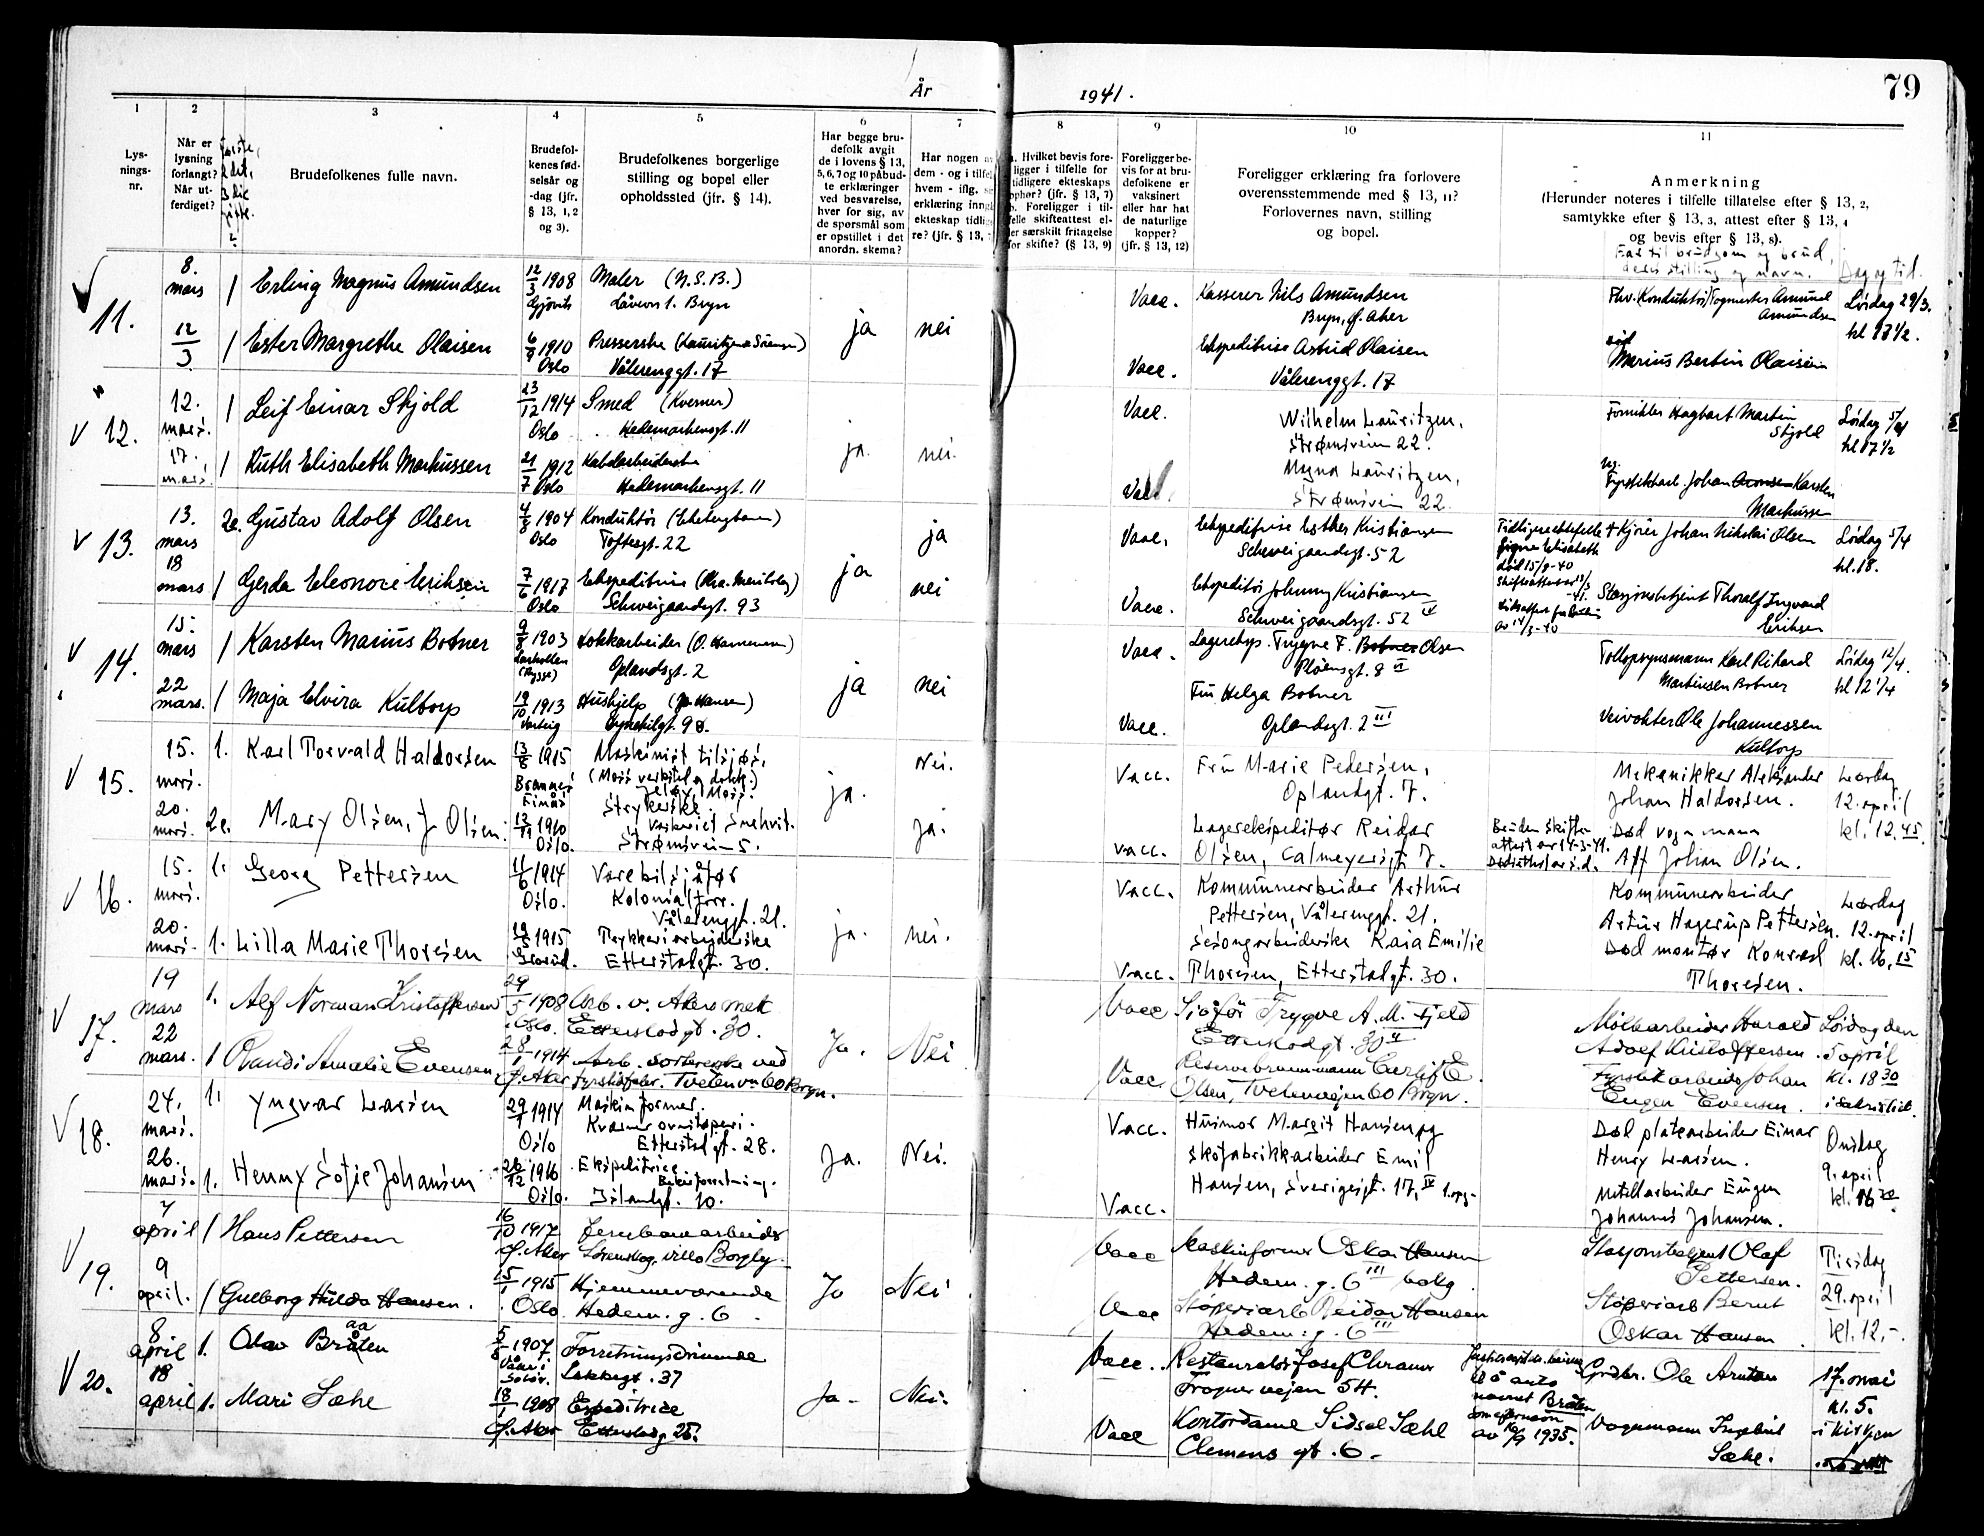 År 1941.
79
1
2
3
4
5
6
7
8
9
10
11
Lys-
nings-
nr.
Når er
lysning
forlangt?
Når ut-
ferdiget?
Brudefolkenes fulle navn.
Brudefol-
kenes fød-
selsår og
-dag (jfr.
§ 13, 1, 2
og 3).
Brudefolkenes borgerlige
stilling og bopel eller
opholdssted (jfr. § 14).
Har begge bru-
defolk avgit
de i lovens § 13,
5, 6, 7 og 10 påbud-
te erklæringer
ved besvarelse,
hver for sig, av
de spørsmål som
er opstillet i det
anordn. skema?
Har nogen
dem - og i tilfel
hvem - iflg.
erklæring inng
ekteskap tidlig
re? (jfr. § 13,
Hvilket bevis fore-
ligger i tilfelle for
tidligere ekteskaps
ophør? (jfr. § 13, 7)
b. Foreligger i til-
felle skifteattest el-
ler særskilt fritagelse
for skifte? (§ 13, 9)
Foreligger be-
vis for at bru-
defolkene er
vaksinert
eller har hat
de naturlige
kopper?
(jfr. § 13, 12)
Foreligger erklæring fra forlovere
overensstemmende med § 13, 11?
Forlovernes navn, stilling
og bopel.
Anmerkning
(Herunder noteres i tilfelle tillatelse efter § 13, 2,
samtykke efter § 13, 3, attest efter § 13, 4
og bevis efter § 13, 8).
Far til brudgom og brud,
deres stilling og navn. Dag og tid.
11.
8.
mars
1 Erling Magnus Amundsen
12/3 1908
Gjøvik
Maler (N.S.B.)
Låveien 1. Bryn
ja nei
Vacc.
Kasserer Nils Amundsen
Bryn, Ø. Aker
Fhv. (Konduktør) Togmester Amund
Amundsen
Lørdag 29/3.
kl 17 1/2.
12/3
1 Ester Margrethe Olaisen
6/9 1910
Oslo
Presserske
Vålerenggt. 17
Vacc.
Ekspeditrise Astrid Olaisen
Vålerenggt. 17
Marius Bertin Olaisen
V 12.
12.
mars.
1 Leif Einar Skjold
23/12 1914
Oslo
Smed (Kværner)
Hedemarkensgt. 11
ja. nei.
Vacc.
Wilhelm Lauritzen,
Strømsveien 22.
Hagbart Martin
Skjold
Lørdag 5/4
kl 17 1/2
17.
mars.
1 Ruth Elisabeth Markussen
21/7 1912
Oslo
Kabelarbeiderske
Hedemarkensgt. 11
Vacc.
Myna Lauritzen,
Strømsveien 22.
Johan Aronsen Karsten
Markussen
V 13.
13.
mars
2e. Gustav Adolf Olsen
4/8 1904
Oslo
Konduktør (Ekebergbanen)
Toftesgt. 22
ja
ja
Vacc.
Ekspeditrise Esther Kristiansen
Schweigaardsgt. 52
Tidligere ektefelle
Signe Elisabeth
død 15/9-40
† Kjører Johan Nikolai Olsen
Lørdag 5/4
kl. 18.
18
mars
1 Gerda Eleonore Eriksen
7/6 1917
Oslo
Ekspeditrise
Schweigaardsgt. 93
nei
Vacc.
Ekspeditør Johnny Kristiansen
Schweigaardsgt. 52 IV
Stasjonsbetjent Thoralf Ingvard
Eriksen
V 14.
15.
mars
1 Karsten Marius Botner
9/8 1903
Larkollen
(Rygge)
Lokkarbeider
Oplandsgt. 2
ja nei
Vacc.
Lagereksp. Trygve F. Botner Olsen
Pløensgt. 8 II
Tollopsynsmann Karl Rikard
Martinsen Botner
Lørdag 12/4.
kl 12 1/4
22
mars.
1 Maja Elvira Kultorp
19/10 1913
Varteig
Hushjelp
Vacc.
Fru Helga Botner
Oplandsgt. 2 III
Veivokter Ole Johannessen
Kultorp
V 15.
15.
mars.
1. Karl Torvald Haldorsen
13/8 1915
Maskinist tilsjøs,
(Moss verksted og dokk.)
Jeløy, Moss.
ja.
Nei.
Vacc.
Fru Marie Pedersen,
Oplandgt. 7.
Mekanikker Aleksander
Johan Haldorsen.
Lørdag
12. april
kl. 12.45.
20.
mars.
2e. Mary Olsen, f Olsen.
1910
Oslo.
Strykerske
Vaskeriet Snehvit.
Strømsvein 5.
Ja.
Vacc.
Lagerekspeditør Reidar
Olsen, Calmeyersgt. 7.
Bruden skifte-
attest av 14-3-41.
Død vognmann
Alf Johan Olsen.
V 16.
15.
mars.
1. Georg Pettersen
11/6 1914
Oslo.
Varebilsjåfør
Kolonialforr.
Vålerenggt. 21.
ja. nei.
Vacc.
Kommunearbeider Arthur
Pettersen, Vålerenggt. 21.
Kommunearbeider
Artur Hagerup Pettersen.
Lørdag
12. april
kl. 16.15
20.
mars.
1. Lilla Marie Thoresen
1915
Grorud.
Trykkeriarbeiderske
Etterstadgt. 30.
Vacc.
Sesongarbeiderske Kaia Emilie
Thoresen, Etterstadgt. 30.
Død montør Konrad
Thoresen.
V 17.
19
mars
1. Alf Norman Kristoffersen
29/5 1908
Oslo.
Arb. v. Akers mek
Etterstadgt. 30.
Ja. Nei
Vacc
Sjåfør Trygve A. M. Fjeld
Etterstadgt. 30 II
Møllearbeider Harald
Adolf Kristoffersen.
Lørdag den
5 april
kl. 18 30
i sakristiet.
22
mars.
1 Randi Amalie Evensen
28/1 1914
Ø. Aker
Arb. sorterske ved
Fyrstikfabr. Tvetenvn 60 Bryn.
Vacc
Reservebrannmann Gerlif E.
Olsen, Tvetenveien 60 Bryn.
Fyrstikarbeider Johan
Eugen Evensen.
V 18.
24.
mars.
1. Yngvar Larsen
29/1 1914
Oslo
Maskinformer.
Kværner ovnstøperi.
Etterstadgt. 28.
Ja. Nei.
Vacc.
Husmor Margit Hansen og
skofabrikkarbeider Emil
Hansen, Sverigesgt. 17, IV 1. opg.
Død platearbeider Einar
Henry Larsen.
Onsdag
9. april
kl. 16 30
26.
mars.
1. Henny Sofie Johansen
26/12 1916
Oslo.
Ekspeditrice
Islandgt. 10.
Vacc.
Metallarbeider Eugen
Johannes Johansen.
V 19.
7
april
1 Hans Pettersen
16/10 1917
Ø. Aker
Jernbanearbeider
Lørenskog, villa Borgly.
Ja Nei
Vacc
Maskinformer Oskar Hansen
Hedem. g. 6 III bolg.
Stasjonsbetjent Olaf
Pettersen.
Tirsdag
29. april
kl. 12,-.
9
april.
1 Gulborg Hulda Hansen.
15/1 1915
Oslo
Hjemmeværende
Hedem. g. 6.
Vacc
Støperiarb Reidar Hansen
Hedem. g. 6 III
Støperiarb Bernt
Oskar Hansen
V 20.
8
april
1. Olav Bråten
aa
5/8 1907
Våler i
Solør.
Forretningsdrivende
Lakkegt. 37
Ja. Nei.
Vacc.
Restauratør Josef Chramer
Frognerveien 54.
navnet Bråten
av 16/9 1935.
Gårdbr. Ole Arntsen
17. mai
kl. 5.
i kirken
18
april
1. Mari Sæhl
18/1 1908
Ø. Aker
Expeditrice
Etterstadg 25.
Vacc
Kontordame Sidsel Sæhl
Clemens gt. 6.
Vognmann Ingebret
Sæhl.